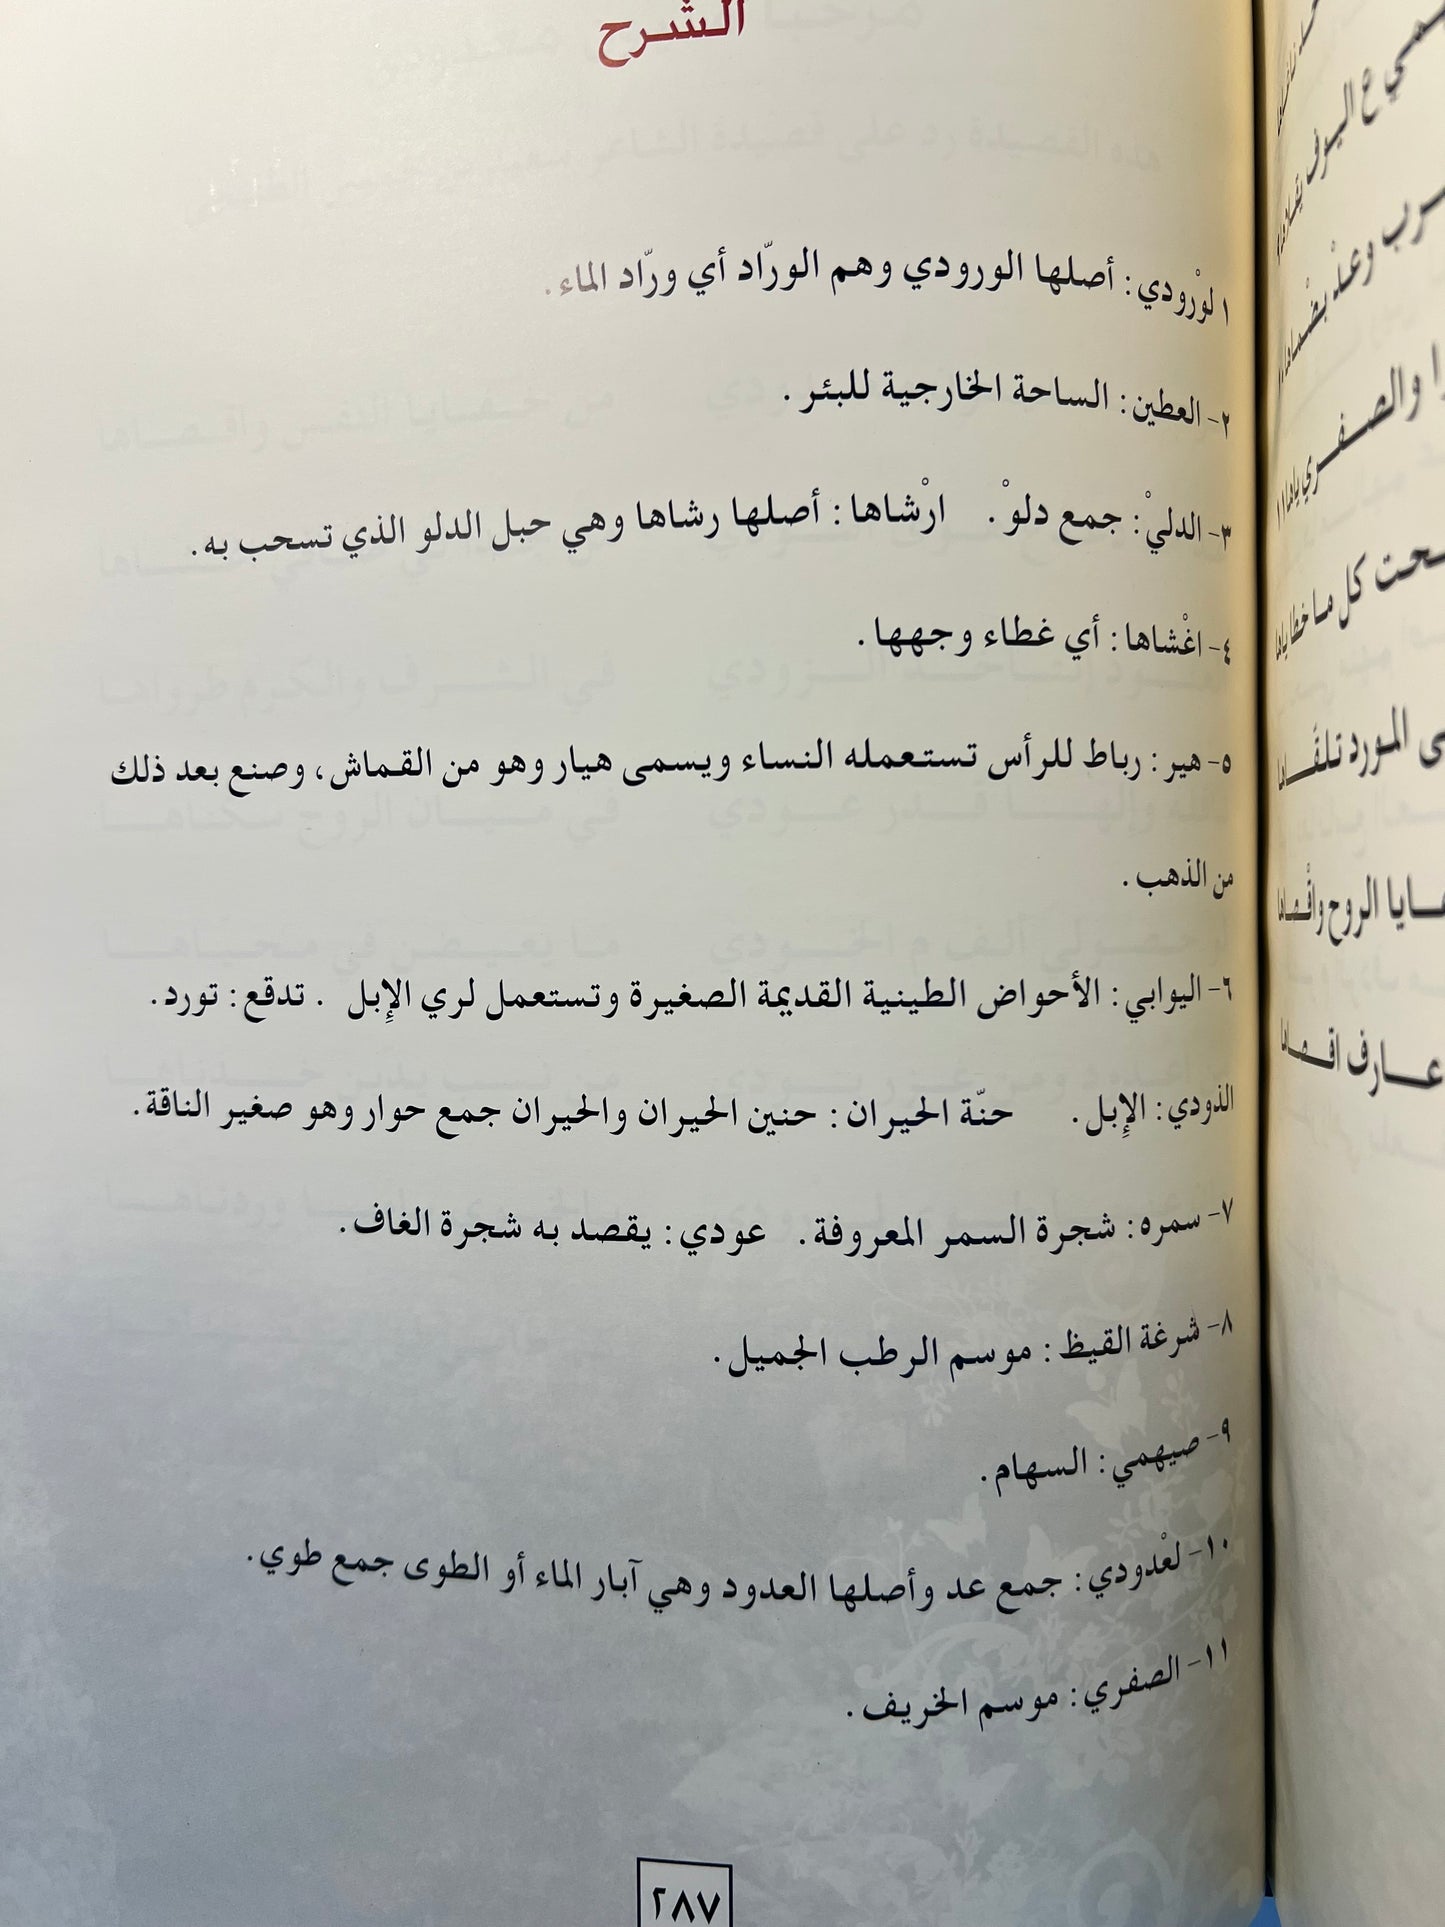 الشرح
١ لوْرودي: أصلها الورودي وهم الورّاد أي ورّاد الماء.
٢- العطين: الساحة الخارجية للبئر.
٣- الدليْ: جمع دلوْ. ارْشاها: أصلها رشاها وهي حبل الدلو الذي تسحب به.
٤- اغْشاها: أي غطاء وجهها.
٥- هير: رباط للرأس تستعمله النساء ويسمى هيار وهو من القماش، وصنع بعد ذلك
من الذهب.
٦- اليوابي: الأحواض الطينية القديمة الصغيرة وتستعمل لري الإبل . تدقع: تورد.
الذودي: الإبل. حنّة الحيران: حنين الحيران والحيران جمع حوار وهو صغير الناقة.
٧- سمره: شجرة السمر المعروفة. عودي: يقصد به شجرة الغاف.
٨- شرغة القيظ: موسم الرطب الجميل.
٩- صيهمي: السهام.
١٠- لعْدودي: جمع عد وأصلها العدود وهي آبار الماء أو الطوى جمع طوي.
١١- الصفري: موسم الخريف.
٢٨٧
ـرب وعنْد بضْماها
ـرا والصـفـري ياها١١
ـحت كل ما خطاياها
ـى المورد تلقـاها
ـايا الروح واقْصاها
عـارف اقـصاها